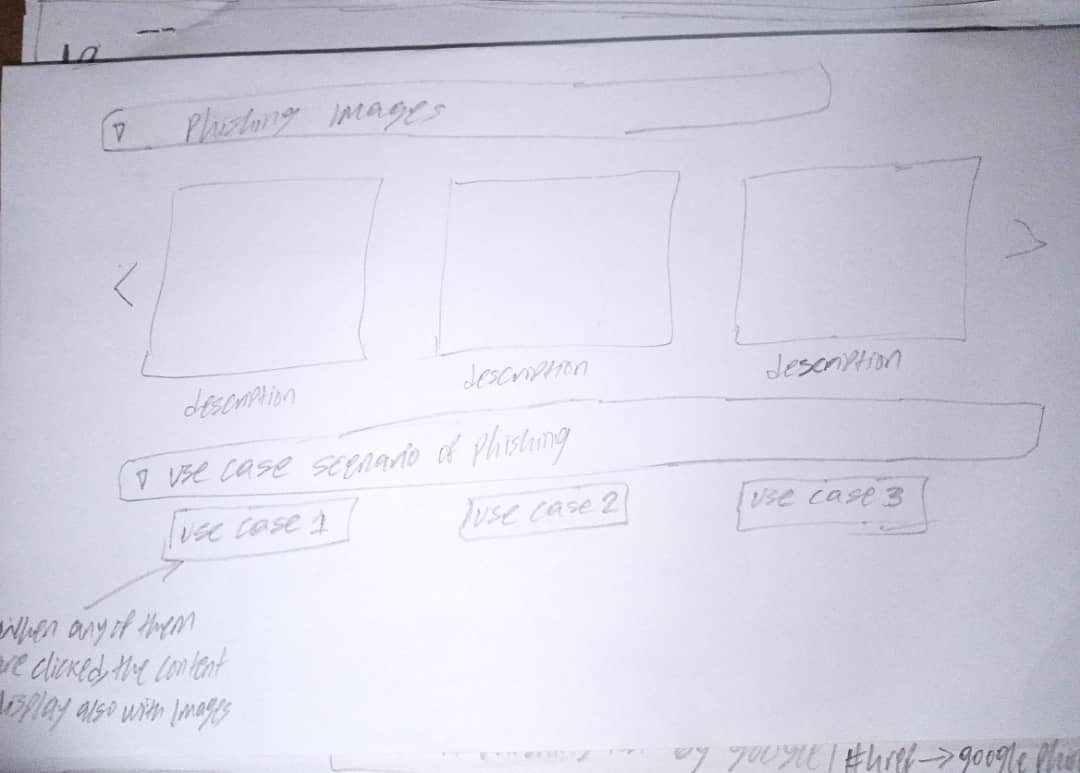 Phishing images
<
>
description
description
description
use case scenario of Phishing
use case 1
use case 2
use case 3
when any of them
are clicked, the content
display also with Images
by google | #href -> google